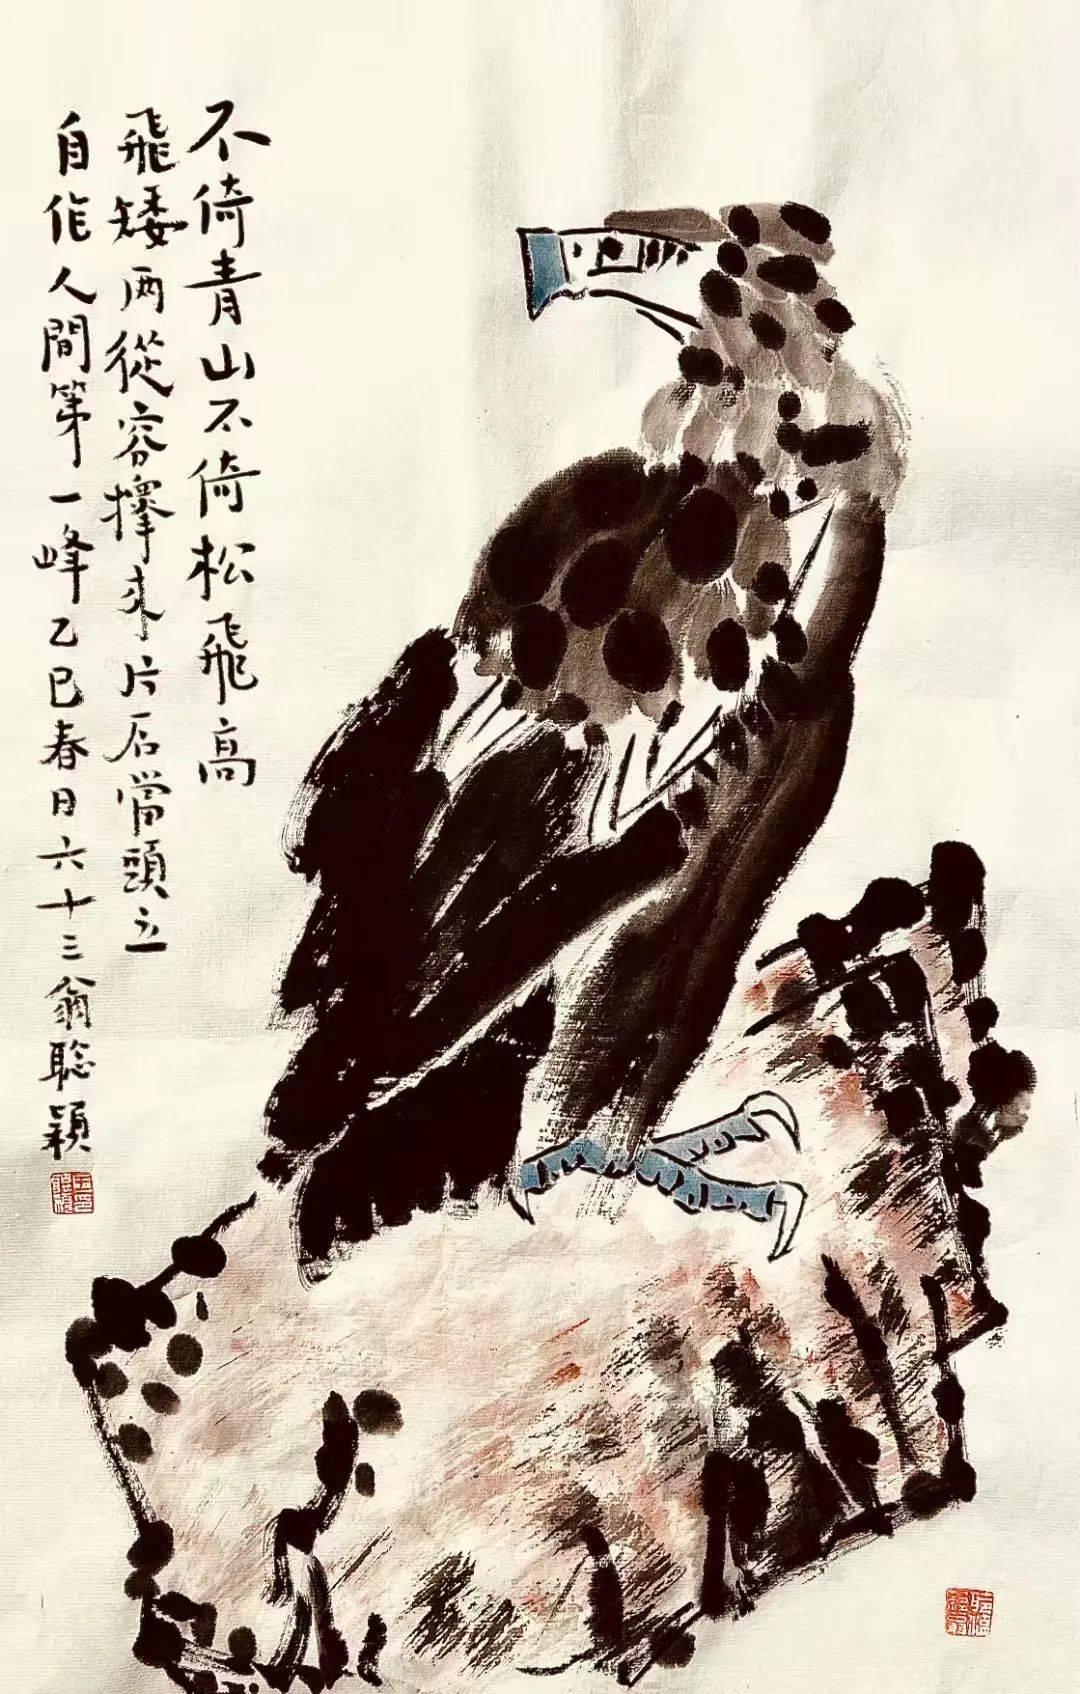 不倚青山不倚松飛高
飛矮兩從容擇來片石當頭立
自作人間第一峰乙巳春日六十三翁聪颖